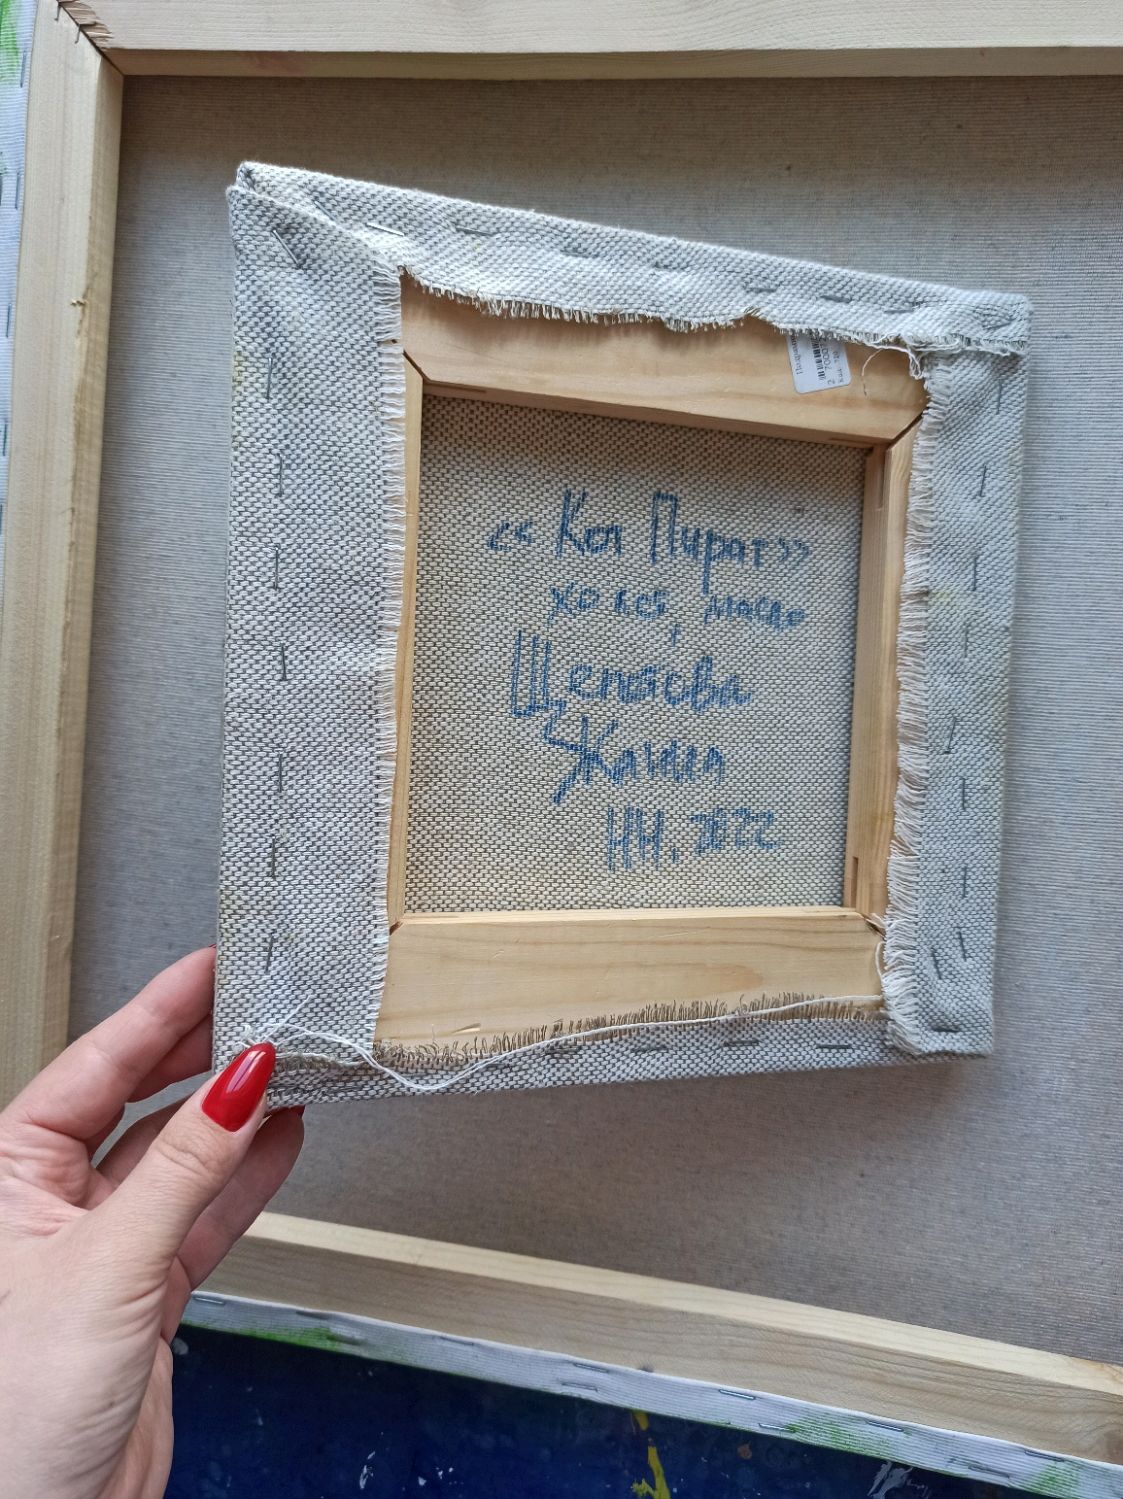 «Кот Пират»
холст, масло
Жанна
НН. 2022